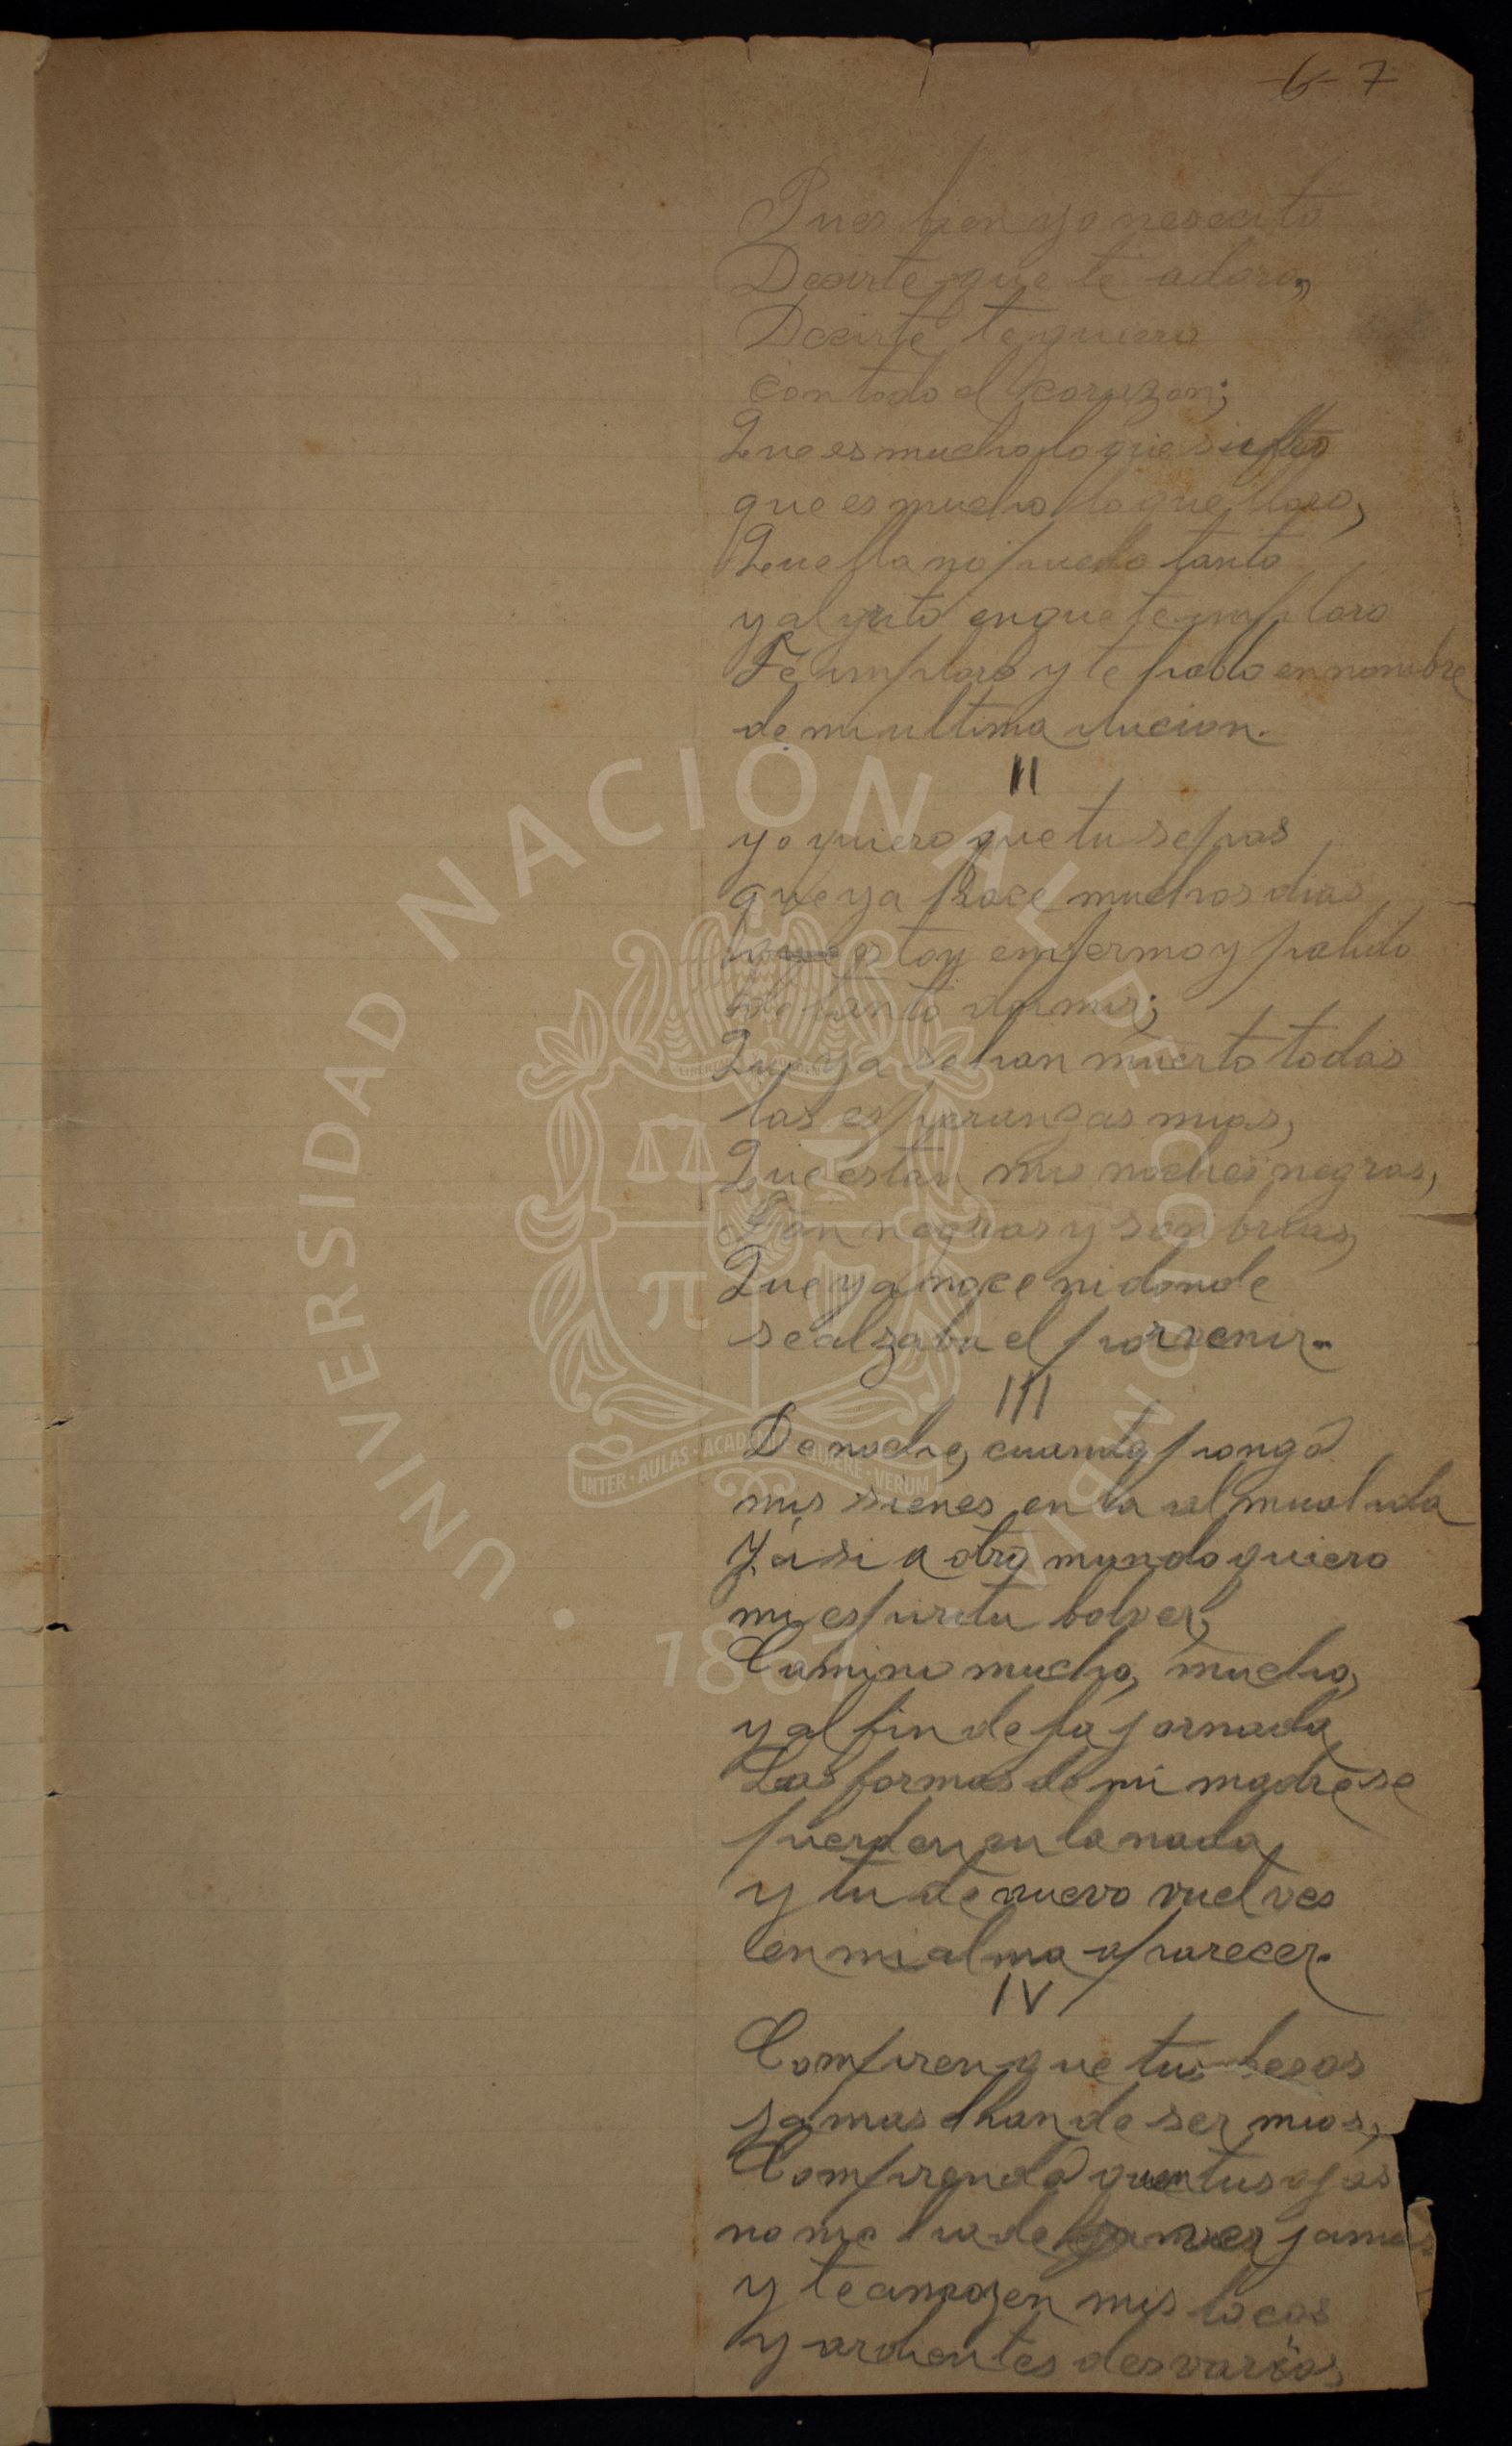 6-7
Pues bien yo nesecito
Decirte que te adoro,
Decirte te quiero
con todo el corazon;
Que es mucho lo que sufro
que es mucho lo que lloro,
Que lla no puedo tanto
y al grito en que te imploro
Te imploro y te hablo en nombre
de mi ultima ilucion.
II
yo quiero que tu sepas
que ya hace muchos dias
estoy enfermo y palido
de tanto dormir;
Que ya se han muerto todas
las esperanzas mias,
Que estan mis noches negras,
Tan negras y sonbrias,
Que ya no ce ni donde
se alzaba el porvenir.
III
De noche, cuando pongo
mis sienes en la almualada
Y asi a otro mundo quiero
mi espiritu bolver,
Camino mucho, mucho,
y al fin de la jornada
Las formas de mi madre se
pierden en la nada
y tu de nuevo vuelves
en mi alma aparecer.
IV
Compren que tus besos
jamas han de ser mios,
Comprendo que en tus ojos
no me ha de ver jamas
y te amo, en mis locos
y ardientes desvarios
UNIVERSIDAD NACIONAL DE COLOMBIA
1867
INTER · AULAS · ACADEMIÆ · QUÆRE · VERUM